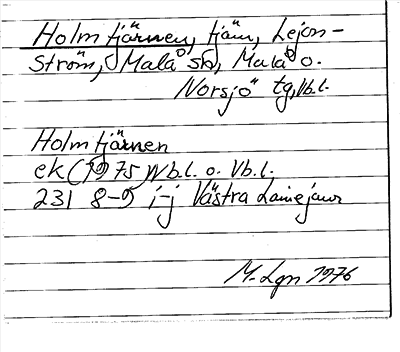 Holmtjärnen, tjärn, Lejon-
Ström, Malå sn, Malå o.
Norsjö tg, Vb.l.
Holmtjärnen
ek (1975) Nb.l. o. Vb.l.
231 8-9 i-j Västra Laniejaur
M. Lgn 1976